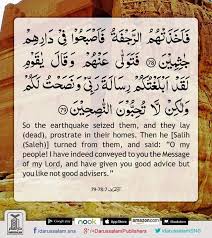 فَاَخَذَتْهُمُ الرَّجْفَةُ فَاَصْبَحُوْا فِيْ دَارِهِمْ
جٰثِمِيْنَ ﴿٧٨﴾ فَتَوَلّٰى عَنْهُمْ وَقَالَ يٰقَوْمِ
لَقَدْ اَبْلَغْتُكُمْ رِسَالَةَ رَبِّيْ وَنَصَحْتُ لَكُمْ
وَلٰكِنْ لَّا تُحِبُّوْنَ النّٰصِحِيْنَ ﴿٧٩﴾
So the earthquake seized them, and they lay
(dead), prostrate in their homes. Then he [Salih
(Saleh)] turned from them, and said: "O my
people! I have indeed conveyed to you the Message
of my Lord, and have given you good advice but
you like not good advisers."
79-78:7
nook
App Store
amazon.com
idarussalam.sns
+DarussalamPublishers
idarussalamSNS